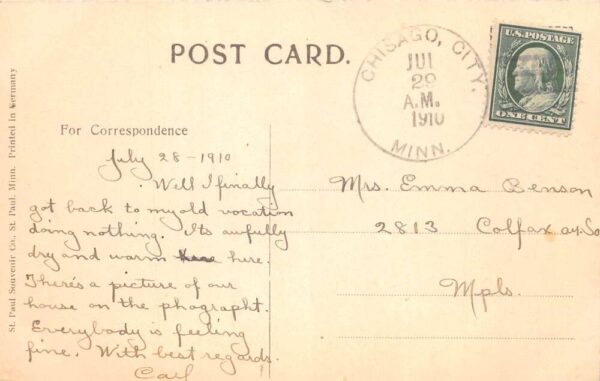 POST CARD.
CHISAGO, CITY.
JUL
29
A.M.
1910
MINN.
U.S. POSTAGE
ONE CENT
St. Paul Souvenir Co., St. Paul, Minn. Printed in Germany
For Correspondence
July 28-1910
Well I finally
got back to my old vocation
doing nothing. Its awfully
dry and warm here.
There's a picture of our
house on the phographt.
Everybody is feeling
fine. With best regards.
Carl
Mrs. Emma Benson
2813 Colfax av. So
Mpls.